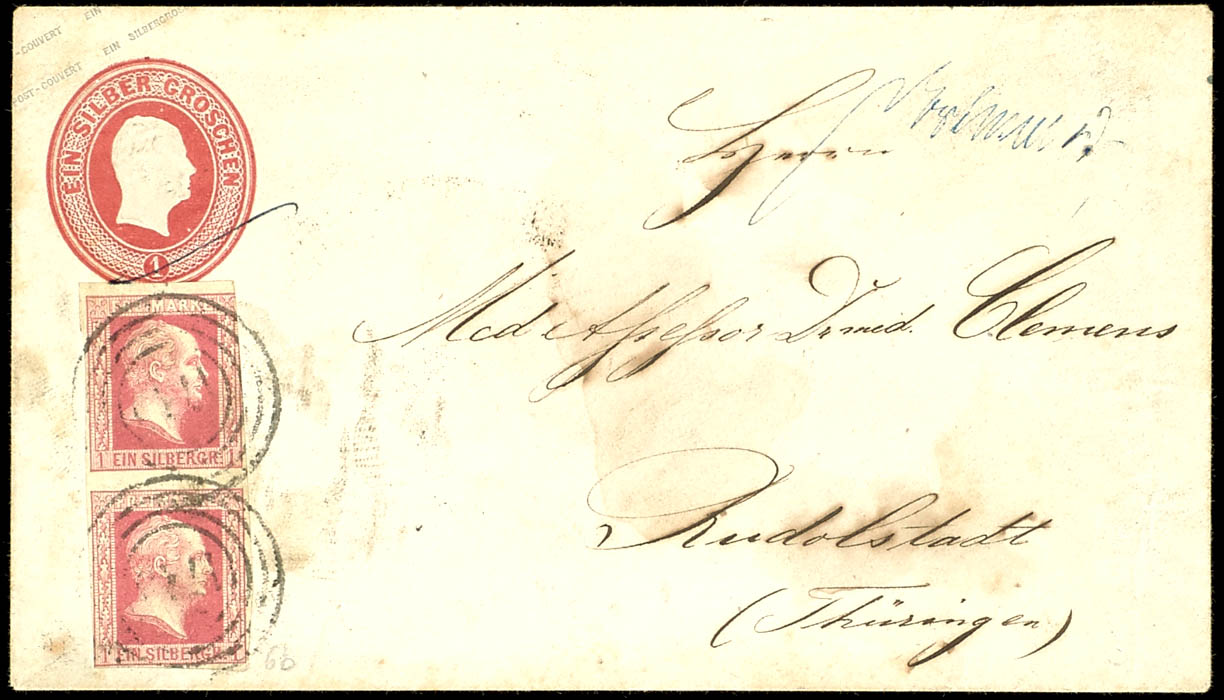 POST-COUVERT EIN SILBERGROS
-COUVERT EIN
EIN SILBER GROSCHEN
1
Herrn
Med Assessor Dr med. Clemens
Rudolstadt
(Thüringen)
MARKE
1 EIN SILBERGR. 1
1 EIN SILBERGR. 1